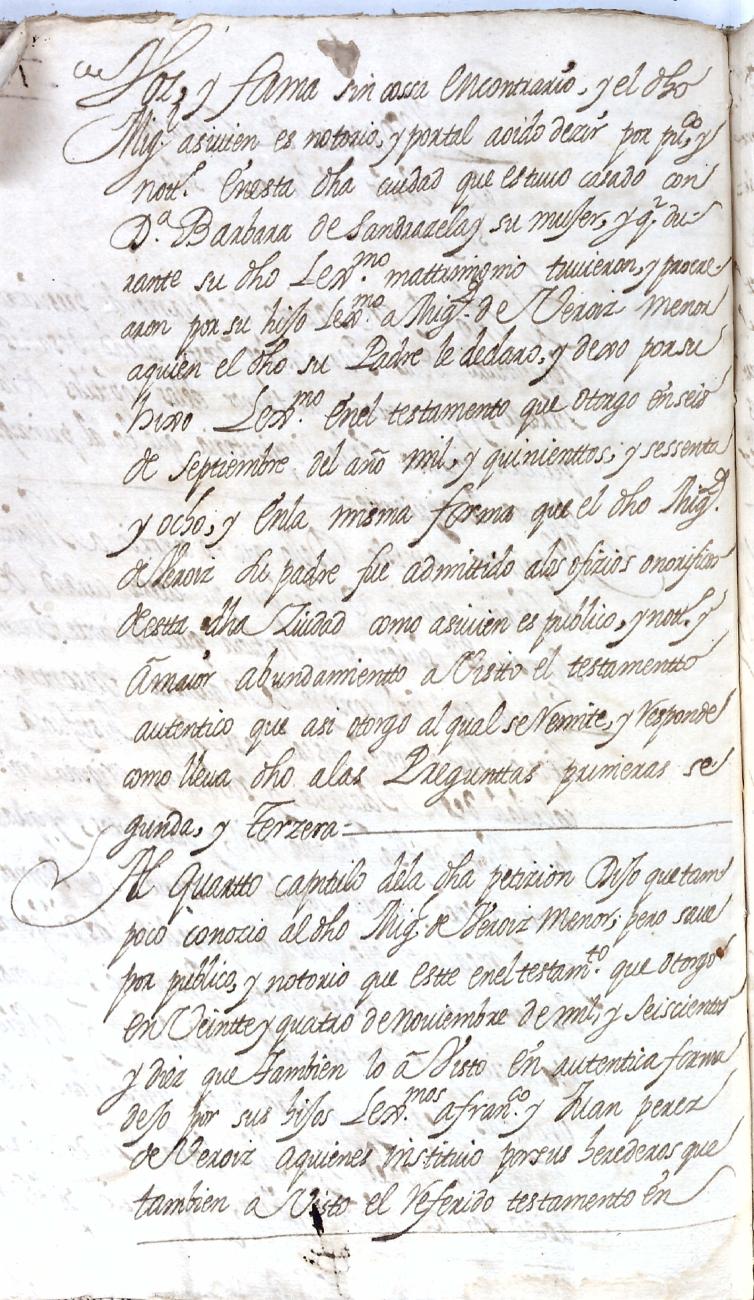 Voz, y fama sin cossa Encontrario, y el dho
Mig.l asivien es notorio, y portal aoido dezir por pu.co y
nott.o Enesta dha ciudad que estuvo casado con
D.a Barbara de su muger, y q.e du-
rante su dho Lex.mo mattrimonio tuvieron, y procre-
aron por su hijo Lex.mo a Mig.l de Veroiz menor
aquien el dho su Padre le declaro, y dexo por su
hixo Lex.mo Enel testamento que otorgo en seis
de septiembre del año mil, y quinienttos, y sessenta
y ocho, y Enla misma forma que el dho Mig.l
de Veroiz su padre fue admittido alos ofizios onorificos
desta dha Ziudad como asivien es publico, y nott.o y
amaior abundamientto a Visto el testamentto
autentico que asi otorgo al qual se Remite, y Responde
como lleva dho alas Pregunttas primeras se
gunda, y Terzera
Al quartto capitulo dela dha petizion Dijo que tam
poco conozio al dho Mig.l de Veroiz menor; pero save
por publico, y notorio que estte enel testam.to que otorgo
en Veintte y quatro de noviembre de mil, y seiscientos
y diez que tambien lo a Visto En autentica forma
dejo por sus hijos Lex.mos a fran.co y Juan perez
de Veroiz aquienes instituio por sus herederos que
tambien a Visto el Referido testamento en